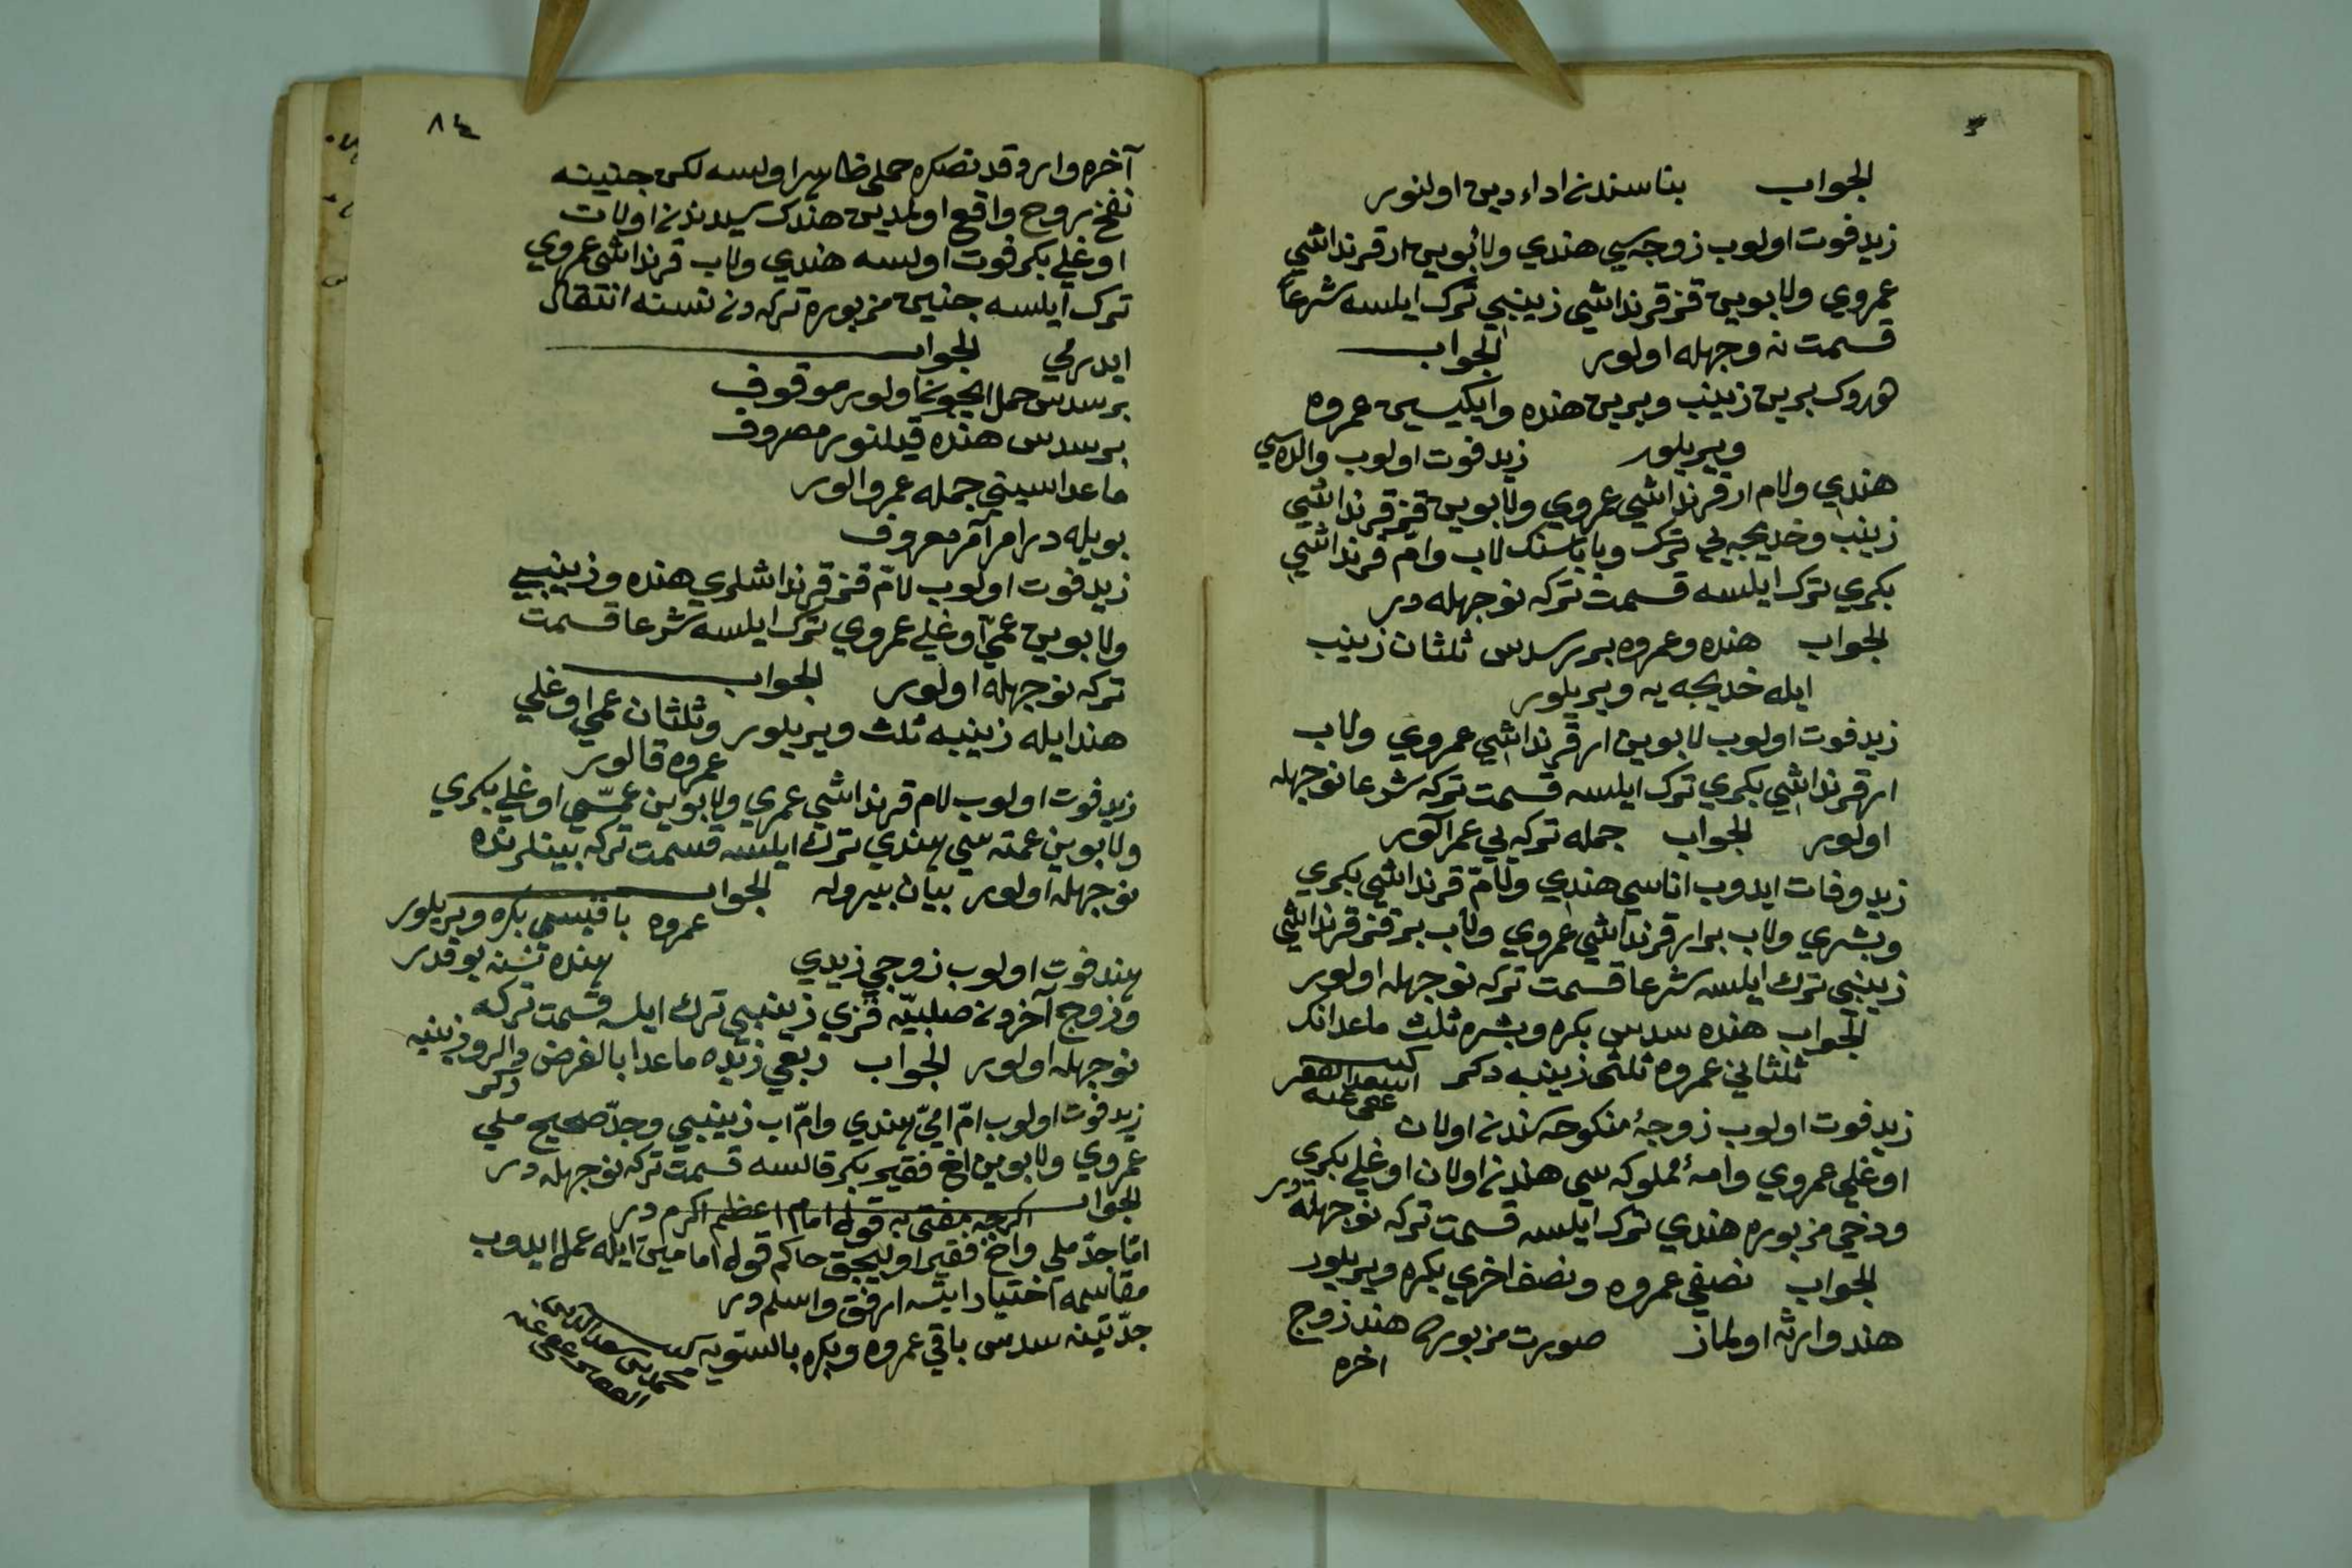 الجواب بناسندن اداء دين اولنور
زيد فوت اولوب زوجه سي هندي ولابوين ار قرنداشي
عمروي ولابوين قز قرنداشي زينبي ترك ايلسه شرعا
قسمت نه وجهله اولور الجواب
برين زينب وبرين هنده وايكيسين عمروه
ويريلور زيد فوت اولوب والده سي
هندي ولام ار قرنداشي عمروي ولابوين قز قرنداشي
زينب وخديجه يي ترك وباباسنك لاب وام قرنداشي
بكري ترك ايلسه قسمت تركه نوجهله در
الجواب هنده وعمروه برر سدس ثلثان زينب
ايله خديجه يه ويريلور
زيد فوت اولوب لابوين ار قرنداشي عمروي ولاب
ار قرنداشي بكري ترك ايلسه قسمت تركه شرعا نوجهله
اولور الجواب جمله تركه يي عمر آلور
زيد وفات ايدوب اناسي هندي ولام قرنداشي بكري
وبشري ولاب بر ار قرنداشي عمروي ولاب بر قز قرنداشي
زينبي ترك ايلسه شرعا قسمت تركه نوجهله اولور
الجواب هنده سدس بكره وبشره ثلث ماعدانك
ثلثاني عمروه ثلثي زينبه دكر كتبه اسعد الفقير
عفى عنه
زيد فوت اولوب زوجهٔ منكوحه سندن اولان
اوغلي عمروي وامهٔ مملوكه سي هندن اولان اوغلي بكري
ودخي مزبوره هندي ترك ايلسه قسمت تركه نوجهله در
الجواب نصفي عمروه ونصف اخري بكره ويريلور
هند وارثه اولماز صورت مزبوره هند زوج
اخره
٨٤
آخره واروقدنصكره حملي ظاهر اولسه لكن جنينه
نفخ روح واقع اولمدين هندك سيدندن اولان
اوغلي بكر فوت اولسه هندي ولاب قرنداشي عمروي
ترك ايلسه جنين مزبوره تركه دن نسنه انتقال
ايدرمي الجواب
بر سدس حمل ايچون اولور موقوف
بر سدس هنده قيلنور مصروف
ماعداسيني جمله عمرو الور
بويله در امر آمر معروف
زيد فوت اولوب لام قز قرنداشلري هنده وزينبي
ولابوين عمي اوغلي عمروي ترك ايلسه شرعا قسمت
تركه نوجهله اولور الجواب
هند ايله زينبه ثلث ويريلور وثلثان عمي اوغلي
عمروه قالور
زيد فوت اولوب لام قرنداشي عمري ولابوين عمسي اوغلي بكري
ولابوين عمته سي هندي ترك ايلسه قسمت تركه بينلرنده
نوجهله اولور بيان بيروله الجواب
عمروه باقيسي بكره ويريلور
هنده نسنه يوقدر
هند فوت اولوب زوجي زيدي
وزوج آخردن صلبيه قزي زينبي ترك ايلسه قسمت تركه
نوجهله اولور الجواب ربعي زيده ماعدا بالفرض والرد زينبه
دكر
زيد فوت اولوب ام امي هندي وام اب زينبي وجد صحيح ملي
عمروي ولابوين اخ فقير بكر قالسه قسمت تركه نوجهله در
الجواب اكرچه مفتى به قول امام اعظم اكرم در
اما جد ملي واخ فقير اوليجق حاكم قول امامين ايله عمل ايدوب
مقاسمه اختيار ايتسه ارفق واسلم در
جدتينه سدس باقي عمروه وبكره بالسويه
محمد بن سعد الدين
الفقير عفى عنه